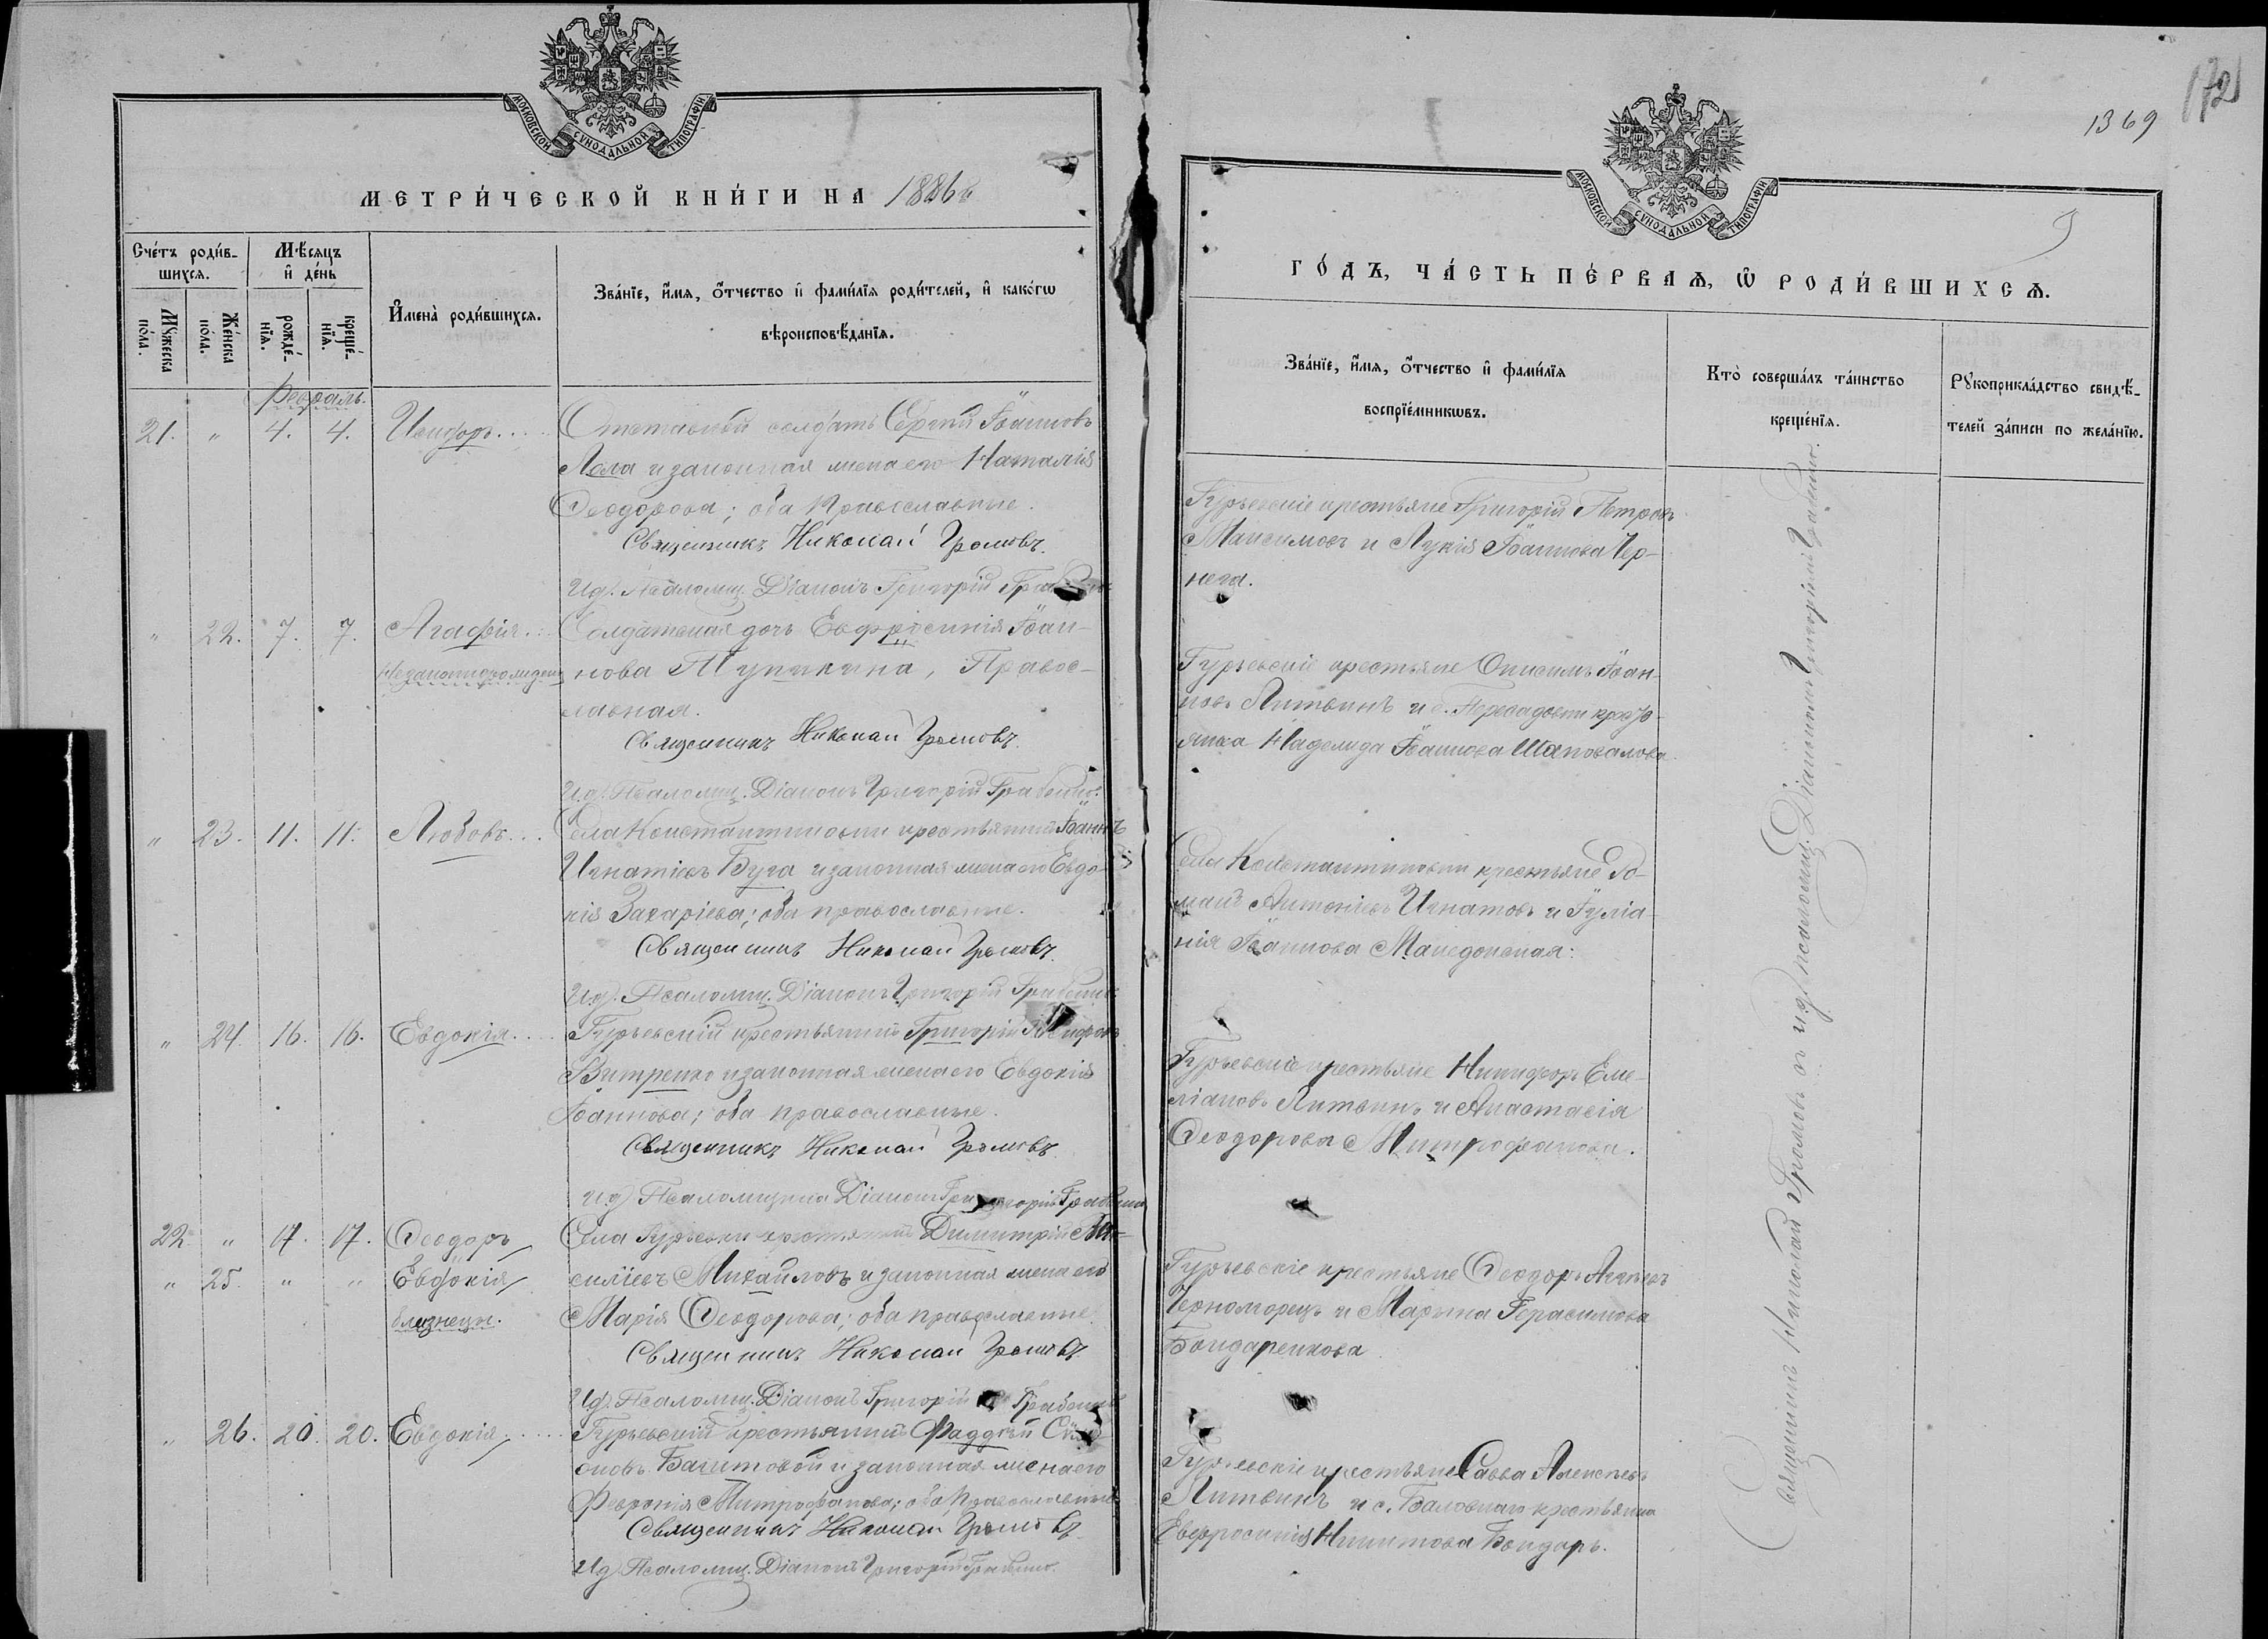 МОСКОВСКОЙ СѴНОДАЛЬНОЙ ТИПОГРАФІИ
МЕТРИ́ЧЕСКОЙ КНИ́ГИ НА 1886
Сче́тъ роди́в-
шихся.
Мѣ́сяцъ
и҆ де́нь
Му́жеска по́ла.
Же́нска по́ла.
рожде́-
нїя.
креще́-
нїя.
И҆мена̀ роди́вшихся.
Зва́нїе, и҆́мя, о҆́тчество и҆ фами́лїя роди́телей, и҆ како́гѡ
вѣроисповѣ́данїя.
Февраль.
21. " 4. 4. Исидоръ....
Отставной солдатъ Сергій Іоанновъ
Лола и законная жена его Наталія
Ѳеодорова; оба православные.
Священникъ Николай Громовъ.
И.д. Псаломщ. Діаконъ Григорій
" 22. 7. 7. Агафія...
Незаконнорожден
Солдатская дочь Евфросинія Іоан-
нова Пупикина, Правос-
лавная.
Священникъ Николай Громовъ.
И.д. Псаломщ. Діаконъ Григорій Грабенко.
" 23. 11. 11. Любовь...
Села Константиновки крестьянинъ Іоаннъ
Игнатіевъ Буга и законная жена его Евдо-
кія Захаріева; оба православные.
Священникъ Николай Громовъ.
И.д. Псаломщ. Діаконъ Григорій Грабенко.
" 24. 16. 16. Евдокія....
Гурьевскій крестьянинъ Григорій
Витренко и законная жена его Евдокія
Іоаннова; оба православные.
Священникъ Николай Громовъ
И.д. Псаломщика Діаконъ Григорій Грабенко
22. " 17. 17. Ѳеодоръ
Села Гурьевки крестьянинъ Димитрій Ва-
" 25. " " Евдокія
силіевъ Михайловъ и законная жена его
близнецы.
Марія Ѳеодорова; оба православные.
Священникъ Николай Громовъ
И.д. Псаломщ. Діаконъ Григорій Грабенко
" 26. 20. 20. Евдокія....
Гурьевскій крестьянинъ Фаддей Сим-
оновъ и законная жена его
Феврония Митрофанова; оба православные
Священникъ Николай Громовъ
И.д. Псаломщ. Діаконъ Григорій Грабенко.
1369
172
МОСКОВСКОЙ СѴНОДАЛЬНОЙ ТИПОГРАФІИ
9
ГО́ДЪ, ЧА́СТЬ ПЕ́РВАѦ, Ѡ҆ РОДИ́ВШИХСѦ.
Зва́нїе, и҆́мя, о҆́тчество и҆ фами́лїя
воспрїе́мникѡвъ.
Кто̀ соверша́лъ та́инство
креще́нїя.
Рукоприкла́дство свидѣ́-
телей за́писи по жела́нїю.
Гурьевскіе крестьяне Григорій Петровъ
Максимовъ и Лукія Іоаннова Чер-
нега.
Гурьевскіе крестьяне Онисимъ Іоан-
новъ Литвинъ и д. Пересадовки крестья-
янка Надежда Іоаннова Шаповалова
Села Константиновки крестьяне Ро-
манъ Антоніевъ Игнатовъ и Іуліа-
нія Іоаннова Македонская:
Гурьевскіе крестьяне Никифоръ Еме-
ліановъ Литвинъ и Анастасія
Ѳеодорова Митрофанова.
Гурьевскіе крестьяне Ѳеодоръ
Черноморецъ и Марѳа Герасимова
Бондаренкова
Гурьевскіе крестьяне Савва Алексѣевъ
Литвинъ и с. Баловнаго крестьянка
Евфросинія Никитова Бондарь.
Священникъ Николай Громовъ съ и.д. псаломщ. Діакономъ Григоріемъ Грабенко.